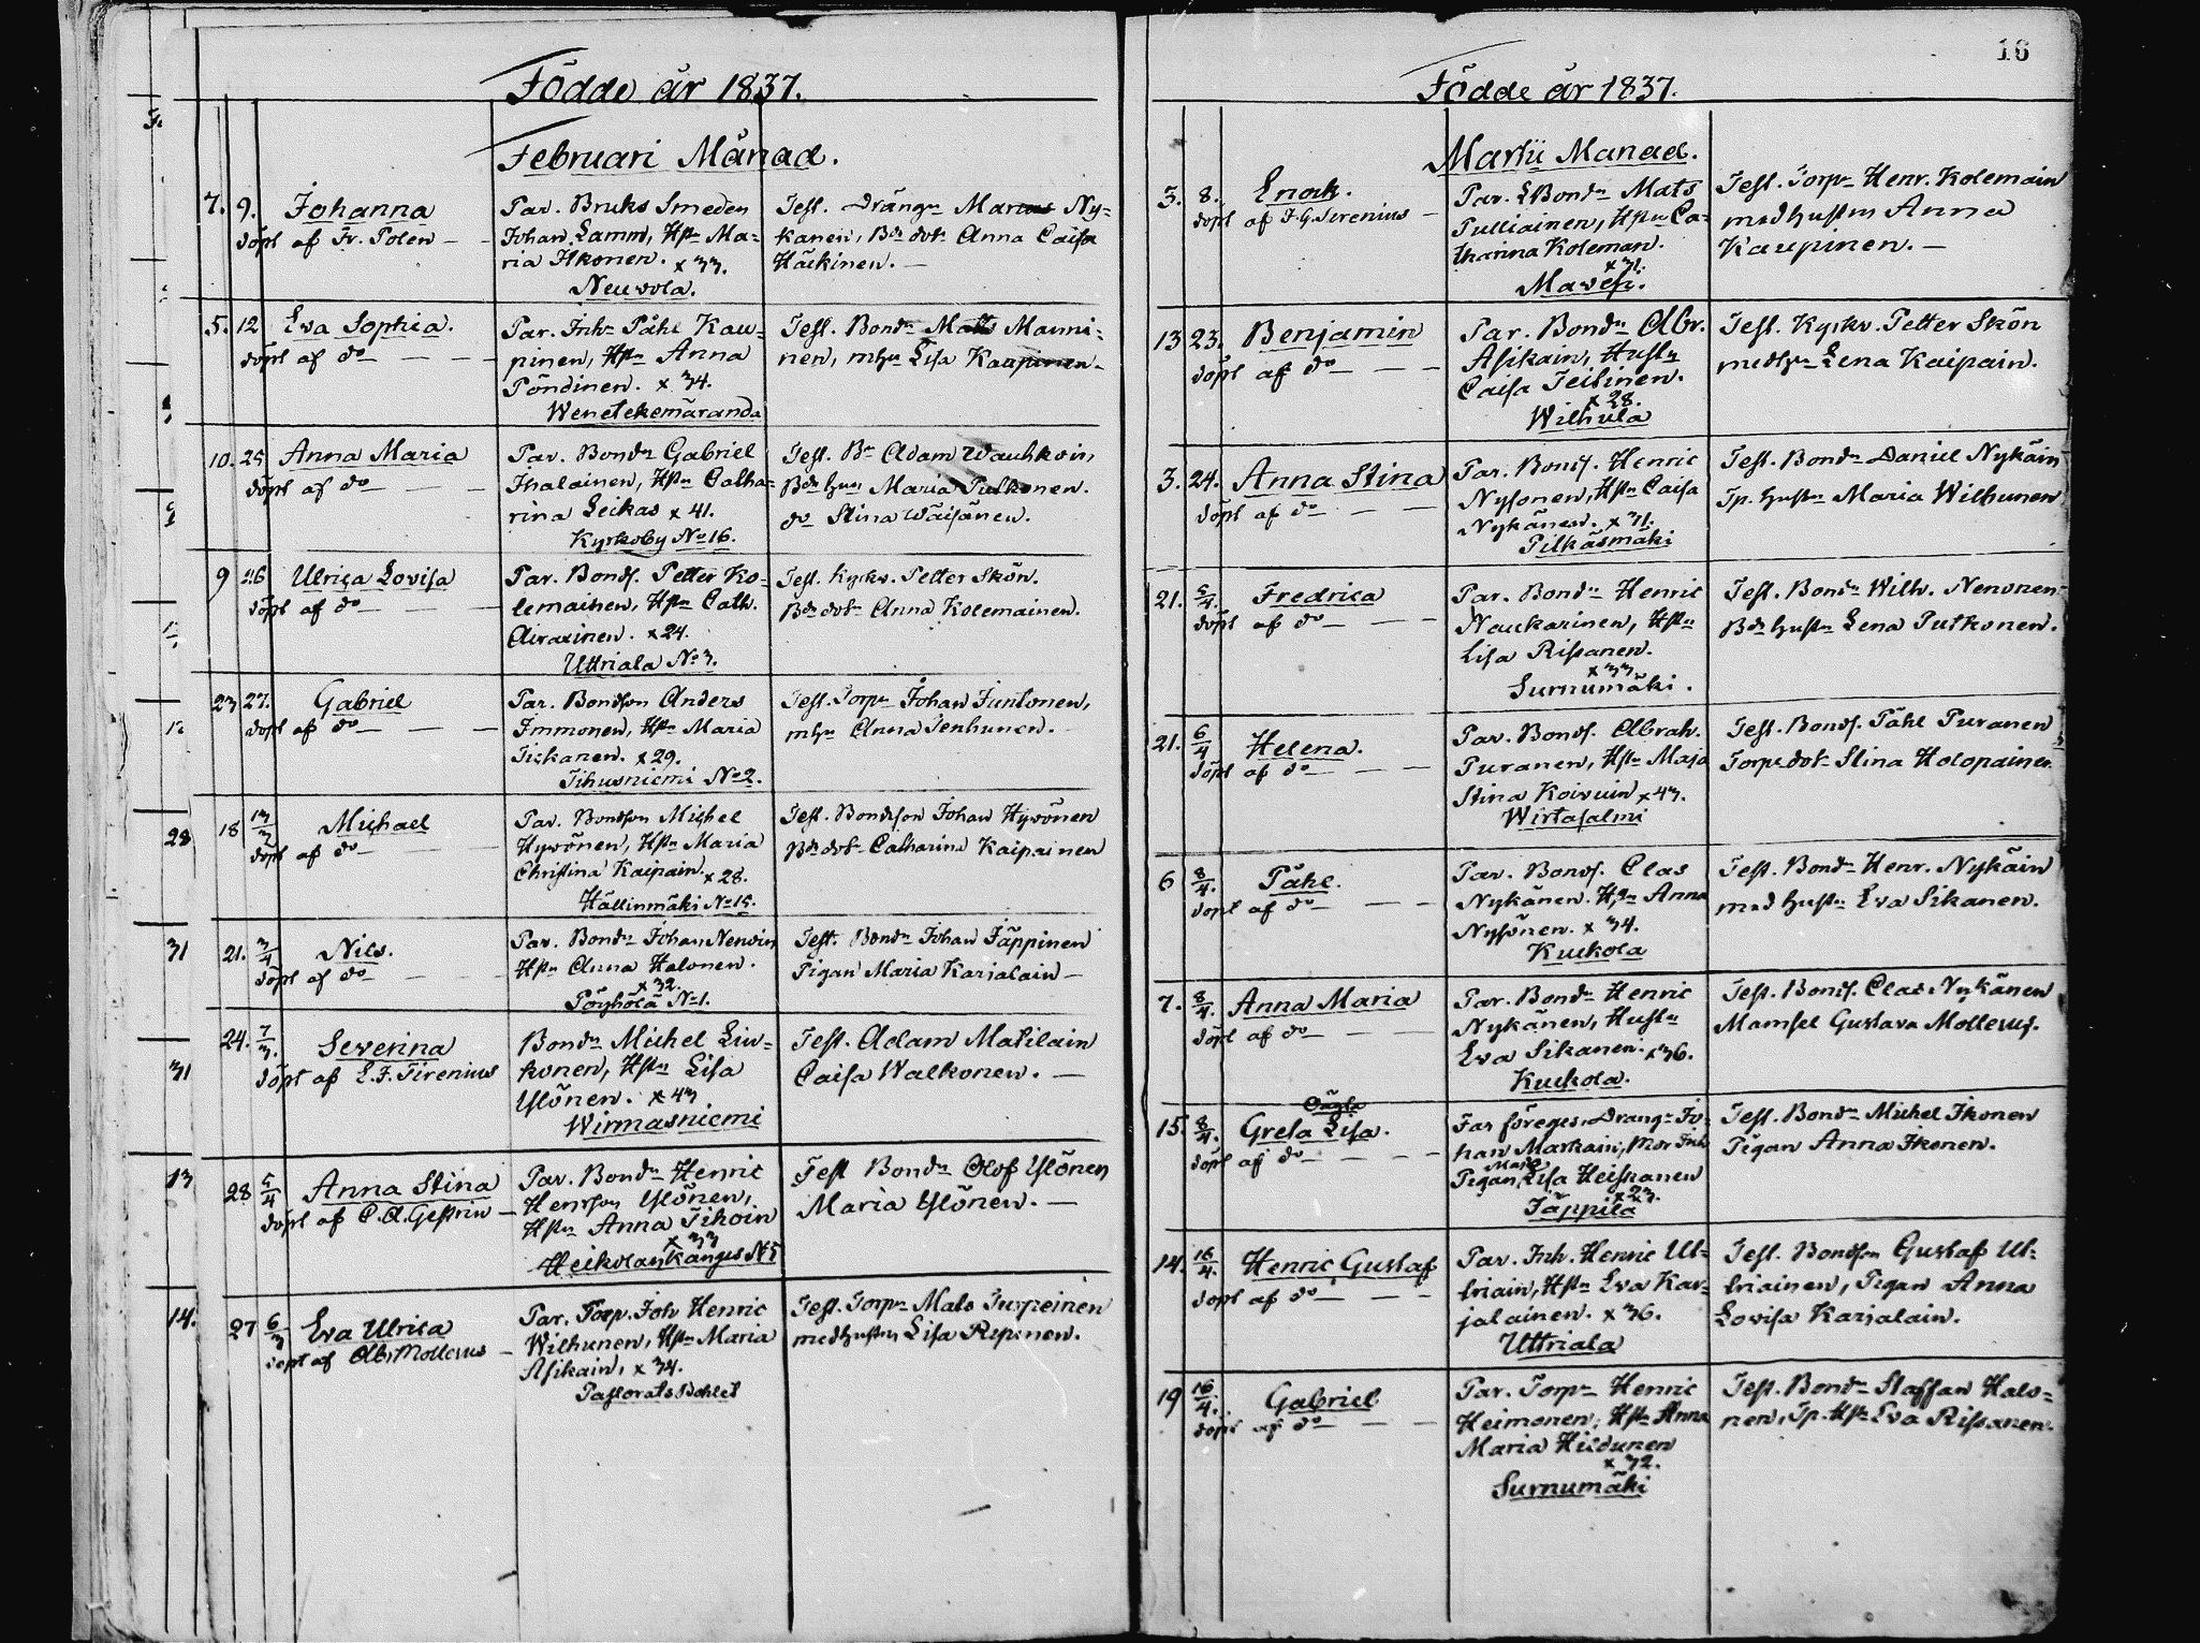 Födde år 1837.
Februari Månad.
7. 9. Johanna
döpt af Fr. Polen
Par. Bruks Smeden
Johan Lamm, Hstn Ma=
ria Ikonen. x 33.
Neuvola.
Test. Drängn Marcus Ny=
kanen, Bde dotr Anna Caisa
Häckinen.
5. 12 Eva Sophia.
döpt af do
Par. Inhs Påhl Kau=
pinen, Hstn Anna
Pöndinen. x 34.
Wenetekemäranda
Test. Bondn Matts Manni=
nen, mhu Lisa Kaupinen
10. 25 Anna Maria
döpt af do
Par. Bondn Gabriel
Ihalainen, Hstn Catha=
rina Leikas x 41.
Kyrkoby No 16.
Test. Bn Adam Wauhkoin
Bde hun Maria Pulkonen.
do Stina Wäisänen.
9 26 Ulrica Lovisa
döpt af do
Par. Bonds. Petter Ko=
lemainen, Hstn Cath.
Airaxinen. x 24.
Uttriala No 3.
Test. Kyrkv. Petter Skön.
Bde dotr Anna Kolemainen.
23 27. Gabriel
döpt af do
Par. Bondson Anders
Immonen, Hstn Maria
Tickanen. x 29.
Tihusniemi No 2.
Test. Torpn Johan Juntonen,
mhu Anna Tenhunen.
28 18 13/3 Michael
döpt af do
Par. Bondson Michel
Hyvönen, Hstn Maria
Christina Kaipain x 28.
Hällinmäki No 15.
Test. Bondson Johan Hyvönen
Bde dotr Catharina Kaipainen
31 21. 3/4 Nils.
döpt af do
Par. Bondn Johan Nenoin
Hstn Anna Halonen.
x 32.
Pöyhölä No 1.
Test. Bondn Johan Jäppinen
Pigan Maria Karialain
31 24. 7/3. Severina
döpt af E. F. Sirenius
Bondn Michel Lin=
konen, Hstn Lisa
Ylönen. x 43
Winnasniemi
Test. Adam Matilain
Caisa Walkonen.
13 28 5/4 Anna Stina
döpt af C. A. Gestrin
Par. Bondn Henric
Henrson Ylönen,
Hstn Anna Tihoin
x 33
Heikolankangas No 5
Test Bondn Olof Ylönen
Maria Ylönen.
14. 27 6/3 Eva Ulrica
döpt af Alb. Mollerus
Par. Torp. Joh Henric
Wilhunen, Hstn Maria
Asikain, x 34.
Pastorats Bohlet
Test. Torpn Mats Turpeinen
med hustru Lisa Reponen.
16
Födde år 1837.
Martii Manad.
3. 8. Enock.
döpt af F. G. Sirenius
Par. LBondn Mats
Pulliainen, Hstn Ca=
tharina Koleman.
x 31.
Mavesi.
Test. Torpn Henr. Kolemain
med hustrn Anna
Kaupinen.
13 23. Benjamin
döpt af do
Par. Bondn Abr.
Asikain, Hustn
Caisa Teitinen.
x 28.
Wilhula
Test. Kyrkv. Petter Skön
med hu Lena Kaipain.
3. 24. Anna Stina
döpt af do
Par. Bonds. Henric
Nysonen, Hstn Caisa
Nykänen. x 31.
Pilkäsmäki
Test. Bondn Daniel Nykäin
Tp. hustn Maria Wilhunen
21. 5/4. Fredrica
döpt af do
Par. Bondn Henric
Naukarinen, Hstn
Lisa Rissanen.
x 33
Surnumäki.
Test. Bondn Wilh. Nenonen
Bde hustn Lena Putkonen.
21. 6/4 Helena.
döpt af do
Par. Bonds. Abrah.
Puranen, Hstn Maja
Stina Koivuin x 43.
Wirtasalmi
Test. Bonds. Påhl Puranen
Torpe dotr Stina Holopainen
6 8/4. Påhl.
döpt af do
Par. Bonds. Clas
Nykänen. Hstn Anna
Nysönen. x 34.
Kuckola
Test. Bondn Henr. Nykäin
med hustn Eva Sikanen.
7. 8/4. Anna Maria
döpt af do
Par. Bondn Henric
Nykänen, Hustn
Eva Sikanen. x 36.
Kuckola.
Test. Bonds. Clas Nykänen
Mamsel Gustava Mollerus.
15. 8/4. Oägta
Greta Lisa.
döpt af do
Far föreges. Drangn Jo=
han Markain, Mor Inh
Pigan Maja Lisa Heiskanen
x 23.
Jäppilä
Test. Bondn Michel Ikonen
Pigan Anna Ikonen.
14. 16/4. Henric Gustaf
döpt af do
Par. Inh. Henric Ut=
triain, Hstn Eva Kar=
jalainen. x 36.
Uttriala
Test. Bondson Gustaf Ut=
triainen, Pigan Anna
Lovisa Karialain.
19 16/4. Gabriel
döpt af do
Par. Torpn Henric
Heimonen, Hstn Anna
Maria Hildunen
x 32.
Surnumäki
Test. Bondn Staffan Halo=
nen, Tp. Hstn Eva Rissanen.